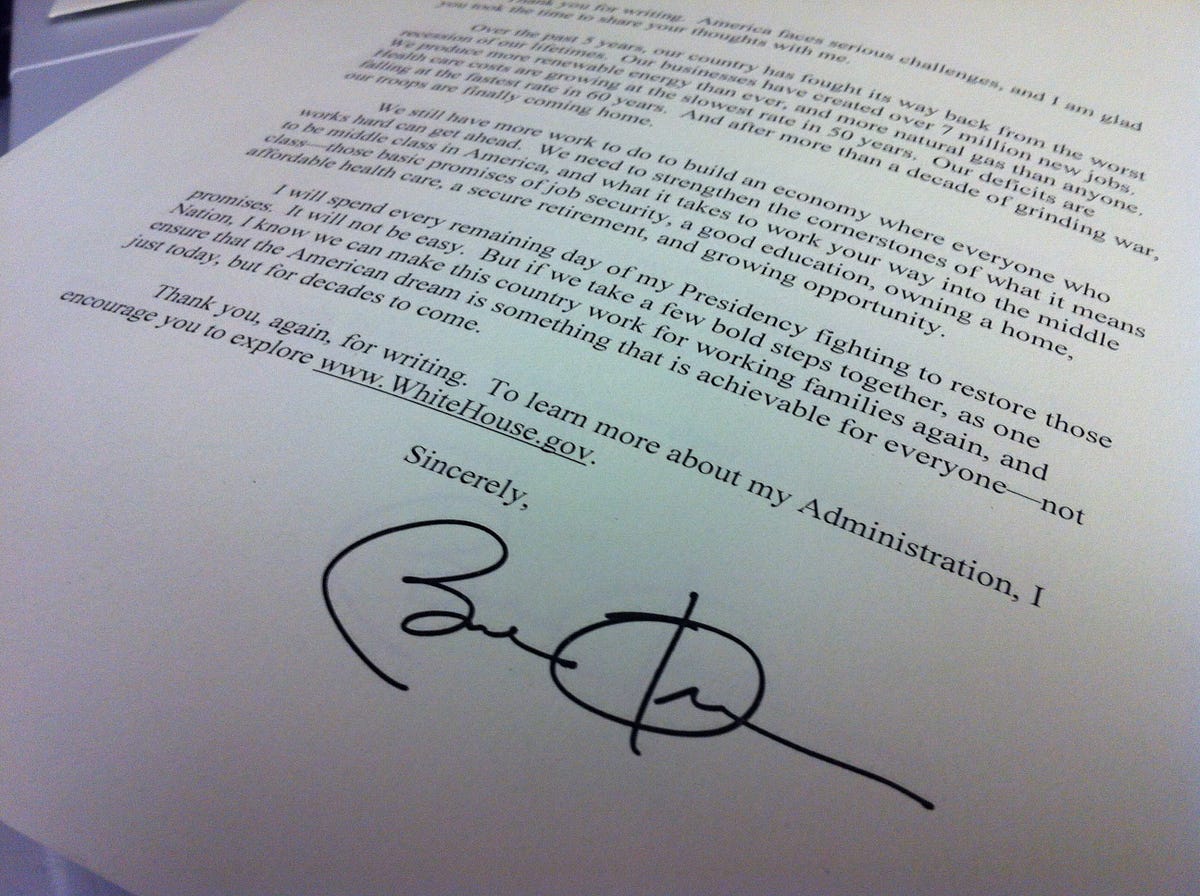 Thank you for writing. America faces serious challenges, and I am glad
you took the time to share your thoughts with me.
Over the past 5 years, our country has fought its way back from the worst
recession of our lifetimes. Our businesses have created over 7 million new jobs.
We produce more renewable energy than ever, and more natural gas than anyone.
Health care costs are growing at the slowest rate in 50 years. Our deficits are
falling at the fastest rate in 60 years. And after more than a decade of grinding war,
our troops are finally coming home.
We still have more work to do to build an economy where everyone who
works hard can get ahead. We need to strengthen the cornerstones of what it means
to be middle class in America, and what it takes to work your way into the middle
class—those basic promises of job security, a good education, owning a home,
affordable health care, a secure retirement, and growing opportunity.
I will spend every remaining day of my Presidency fighting to restore those
promises. It will not be easy. But if we take a few bold steps together, as one
Nation, I know we can make this country work for working families again, and
ensure that the American dream is something that is achievable for everyone—not
just today, but for decades to come.
Thank you, again, for writing. To learn more about my Administration, I
encourage you to explore www.WhiteHouse.gov.
Sincerely,